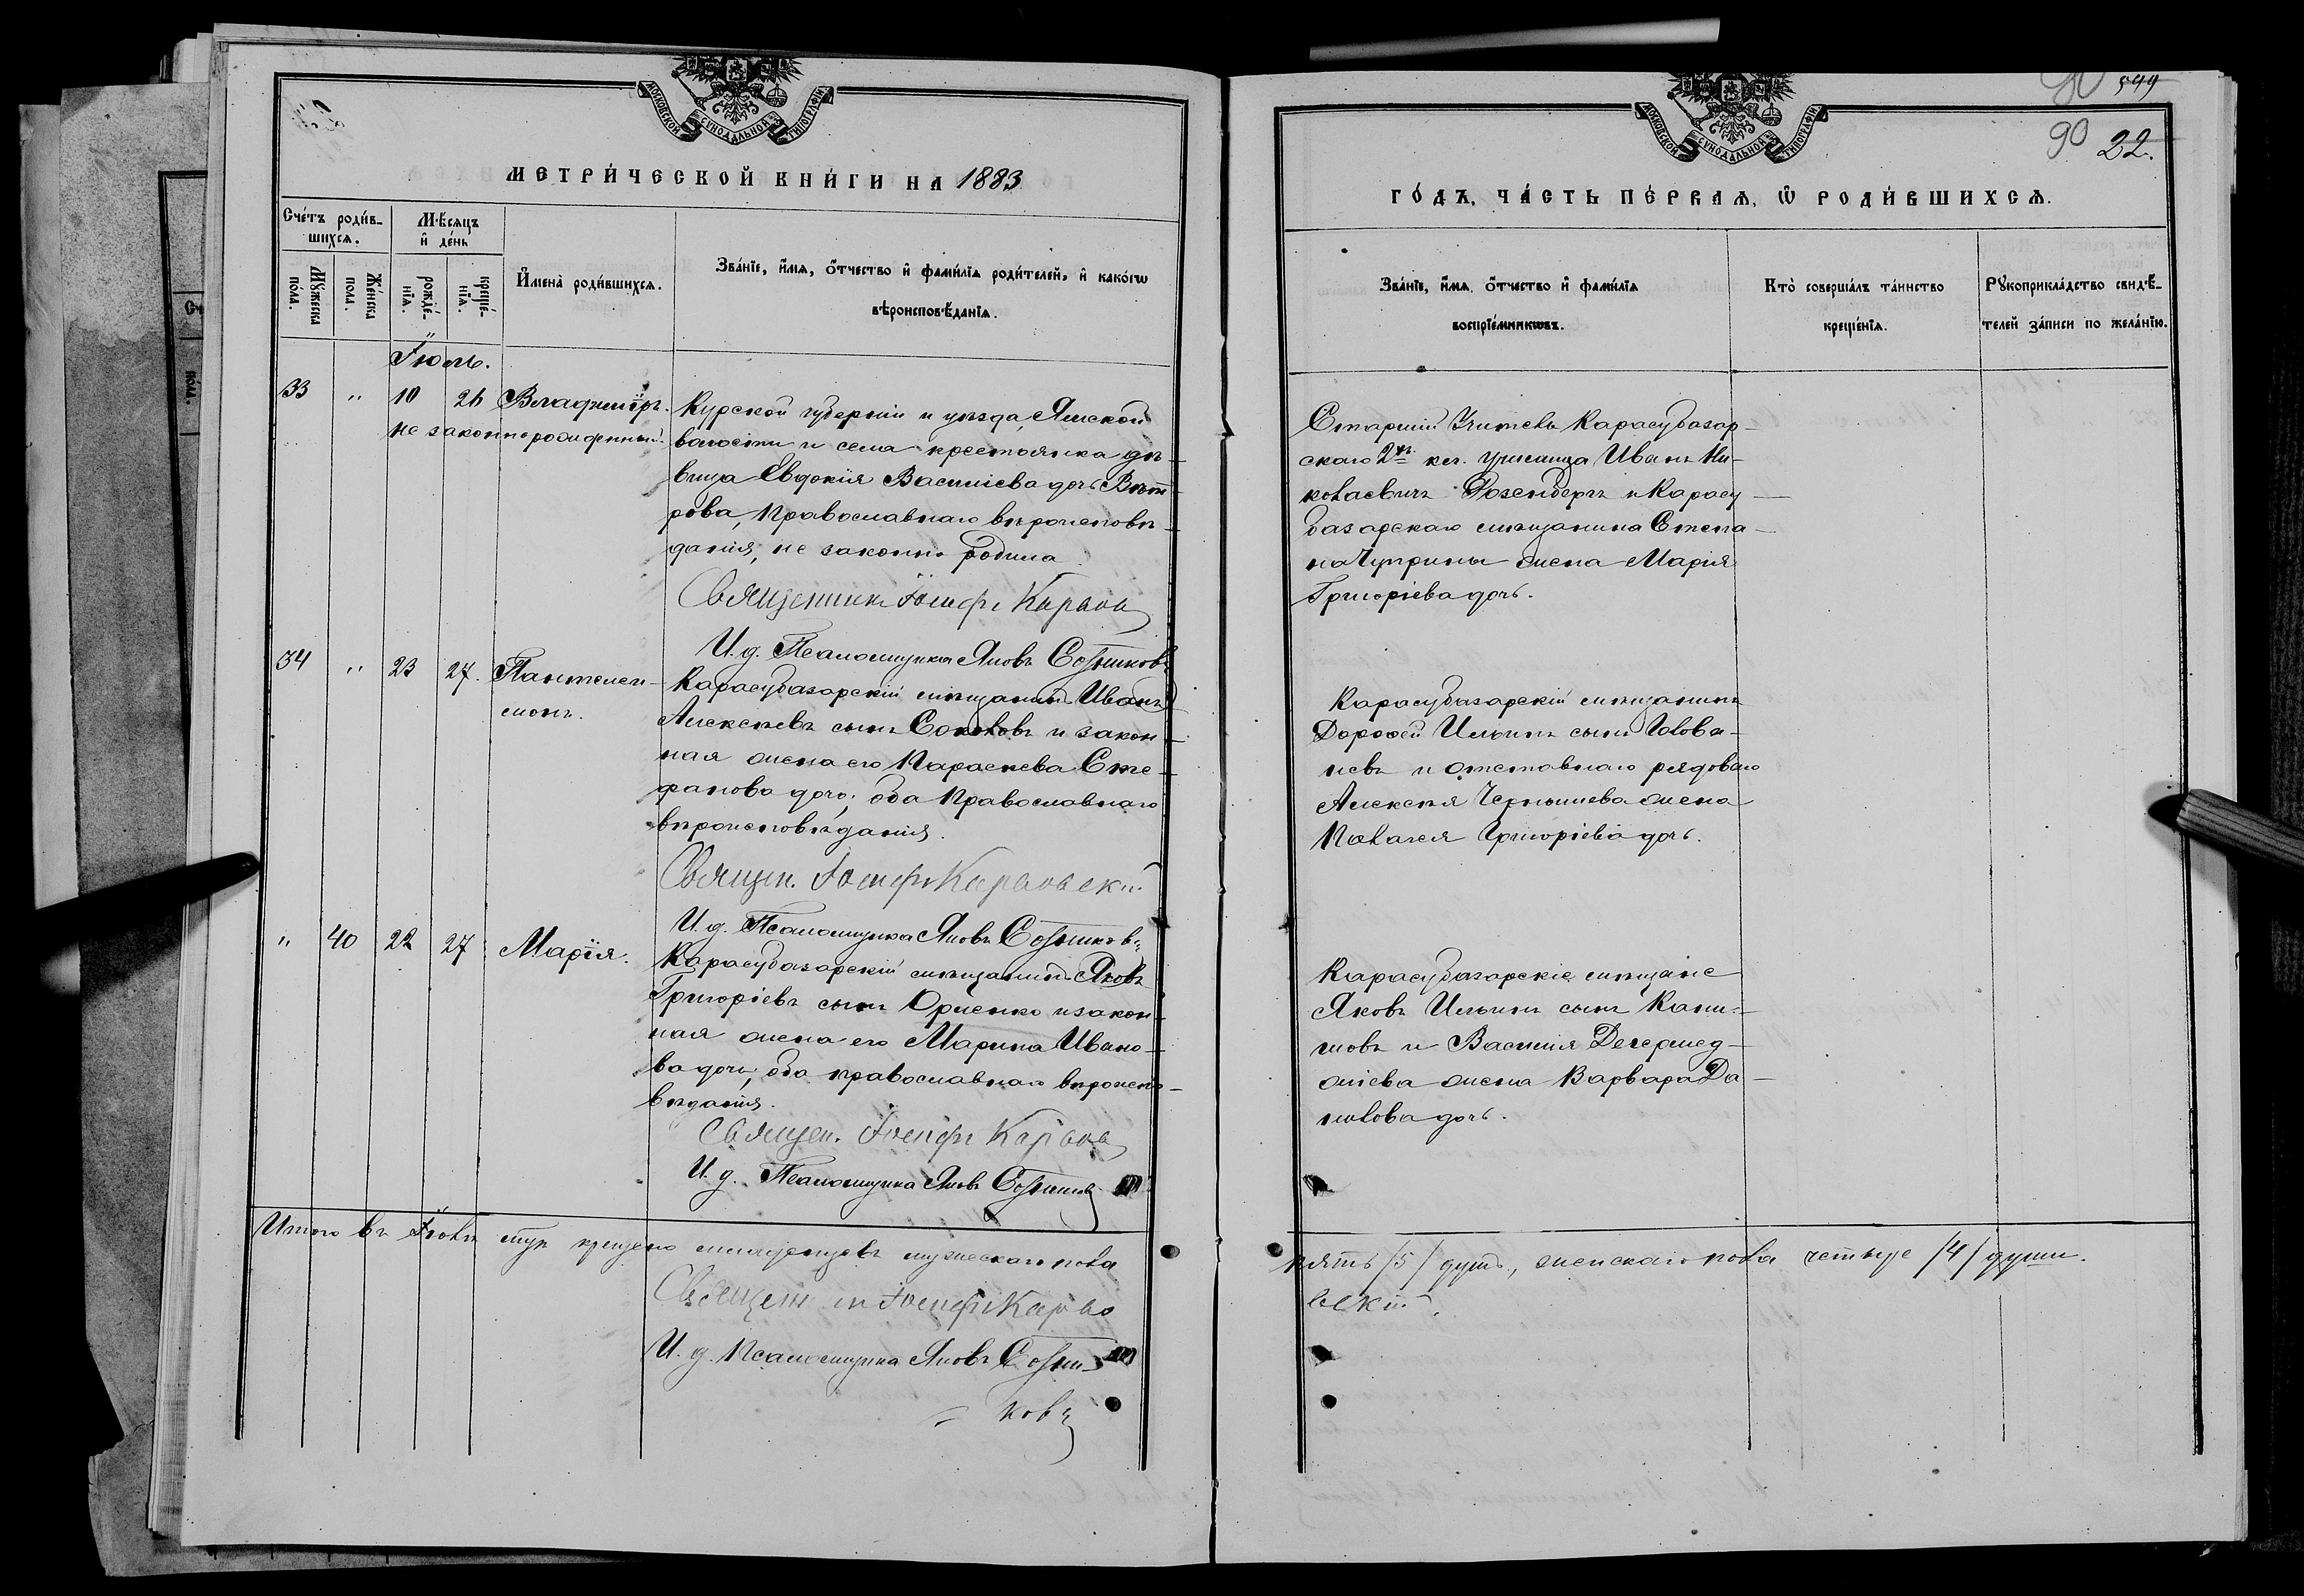 МОСКОВСКОЙ СѴНОДАЛЬНОЙ ТИПОГРАФІИ
МЕТРИ́ЧЕСКОЙ КНИ́ГИ НА 1883
Сче́тъ роди́в-
шихсѧ.
Мѣ́сѧцъ
и҆ де́нь
Мꙋ́жеска
по́ла.
Же́нска
по́ла.
рожде́-
нїѧ.
креще́-
нїѧ.
И҆мена̀ роди́вшихсѧ.
Зва́нїе, и҆́мѧ, ѻ҆́тчество и҆ фами́лїѧ роди́телей, и҆ како́гѡ
вѣроисповѣ́данїѧ.
Іюль.
33 " 10 26 Владиміръ.
не законнорожденный.
Курской губерніи и уѣзда, Ямской
волости и села крестьянка дѣ-
вица Евдокія Василіева дочь Вѣт-
рова, Православнаго вѣроисповѣ-
данія, не законно родила
Священникъ Іосифъ
И. д. Псаломщика Яковъ
34 " 23 27. Пантелеи-
монъ.
Карасубазарскій мѣщанинъ Иванъ
Алексѣевъ сынъ Соколовъ и закон-
ная жена его Параскева Сте-
фанова дочь, оба Православнаго
вѣроисповѣданія.
Священ. Іосифъ
И. д. Псаломщика Яковъ
" 40 22 27. Марія.
Карасубазарскій мѣщанинъ Яковъ
Григоріевъ сынъ Юрченко и закон-
ная жена его Марина Ивано-
ва дочь, оба православнаго вѣроиспо-
вѣданія.
Священ. Іосифъ
И. д. Псаломщика Яковъ
Итого въ Іюлѣ м-цѣ крещено младенцевъ мужескаго пола
Священникъ Іосифъ
И. д. Псаломщика Яковъ
ковъ
МОСКОВСКОЙ СѴНОДАЛЬНОЙ ТИПОГРАФІИ
90 22.
ГО́ДЪ, ЧА́СТЬ ПЕ́РВАѦ, Ѽ РОДИ́ВШИХСѦ.
Зва́нїе, и҆́мѧ, ѻ҆́тчество и҆ фами́лїѧ
воспрїе́мникѡвъ.
Кто̀ соверша́лъ та́инство
креще́нїѧ.
Рꙋкоприкла́дство свидѣ́-
телей за́писи по жела́нїю.
Старшій Учитель Карасубазар-
скаго 2хъ кл. училища Иванъ Ни-
колаевичъ Розенбергъ и Карасу-
базарскаго мѣщанина Степа-
на Чуприны жена Марія
Григоріева дочь.
Карасубазарскій мѣщанинъ
Дорофей Ильинъ сынъ Голова-
невъ и отставнаго рядоваго
Алексѣя Чернышева жена
Пелагея Григоріева дочь.
Карасубазарскіе мѣщане
Яковъ Ильинъ сынъ
и Василія
жена Варвара Да-
нилова дочь.
пять /5/ душъ, женскаго пола четыре /4/ души.
вскій.